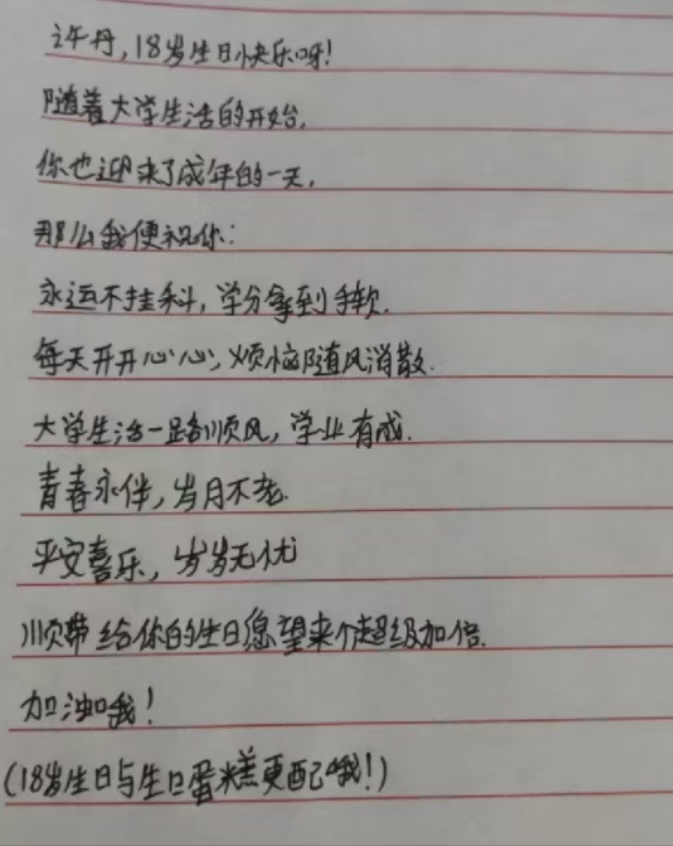 许丹,18岁生日快乐呀!
随着大学生活的开始,
你也迎来了成年的一天,
那么我便祝你:
永远不挂科,学分拿到手软.
每天开开心心,烦恼随风消散.
大学生活一路顺风,学业有成.
青春永伴,岁月不老.
平安喜乐,岁岁无忧
顺带给你的生日愿望来个超级加倍.
加油哦!
(18岁生日与生日蛋糕更配哦!)